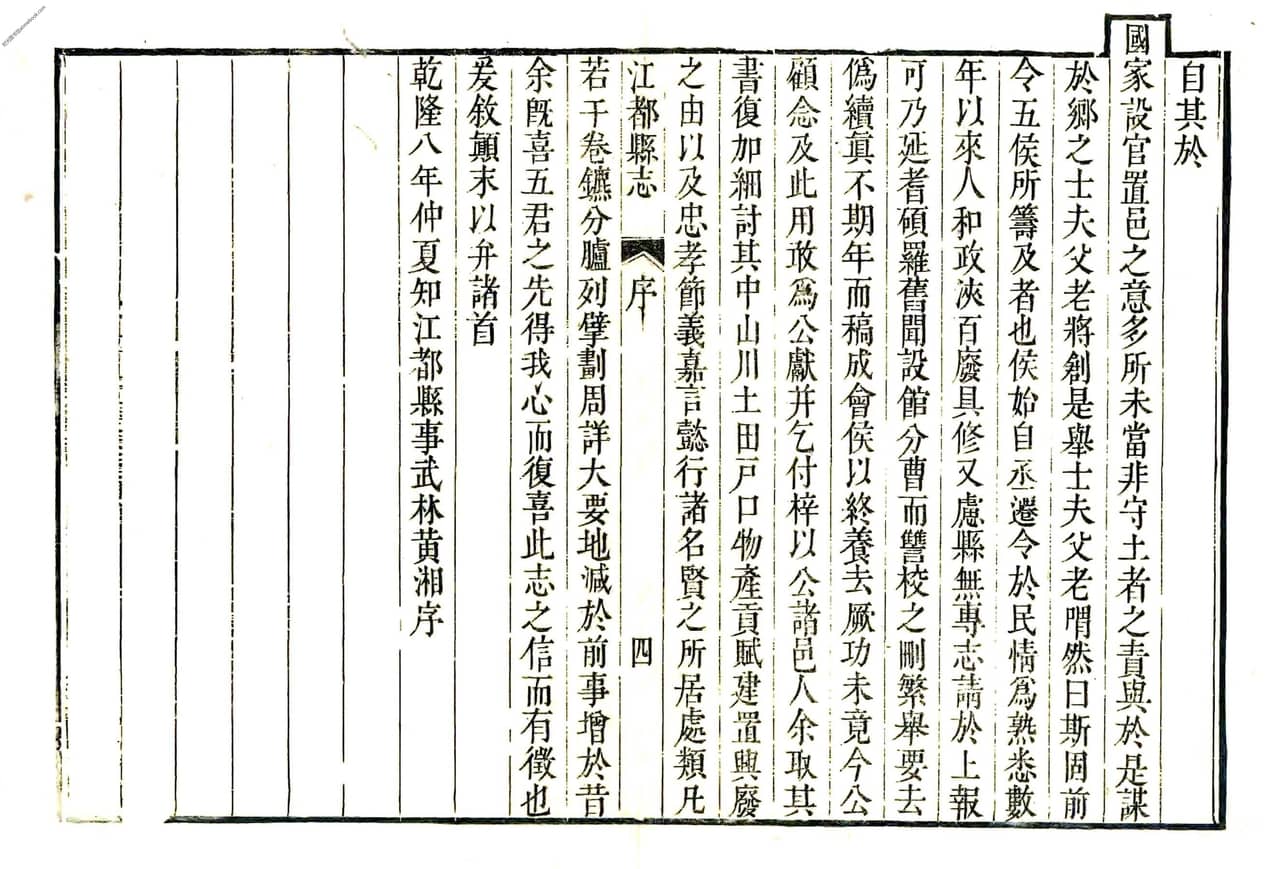 自其於
國家設官置邑之意多所未當非守土者之責與於是謀
於鄉之士夫父老將創是舉士夫父老喟然曰斯固前
令五侯所籌及者也侯始自丞遷令於民情為熟悉數
年以來人和政浹百廢具修又慮縣無專志請於上報
可乃延耆碩羅舊聞設館分曹而讐校之刪繁舉要去
偽續眞不期年而稿成會侯以終養去厥功未竟今公
顧念及此用敢為公獻并乞付梓以公諸邑人余取其
書復加細討其中山川土田戸口物產貢賦建置興廢
之由以及忠孝節義嘉言懿行諸名賢之所居處類凡
江都縣志 序 四
若干卷鑣分臚列擘劃周詳大要地減於前事增於昔
余旣喜五君之先得我心而復喜此志之信而有徵也
爰敘顛末以弁諸首
乾隆八年仲夏知江都縣事武林黃湘序